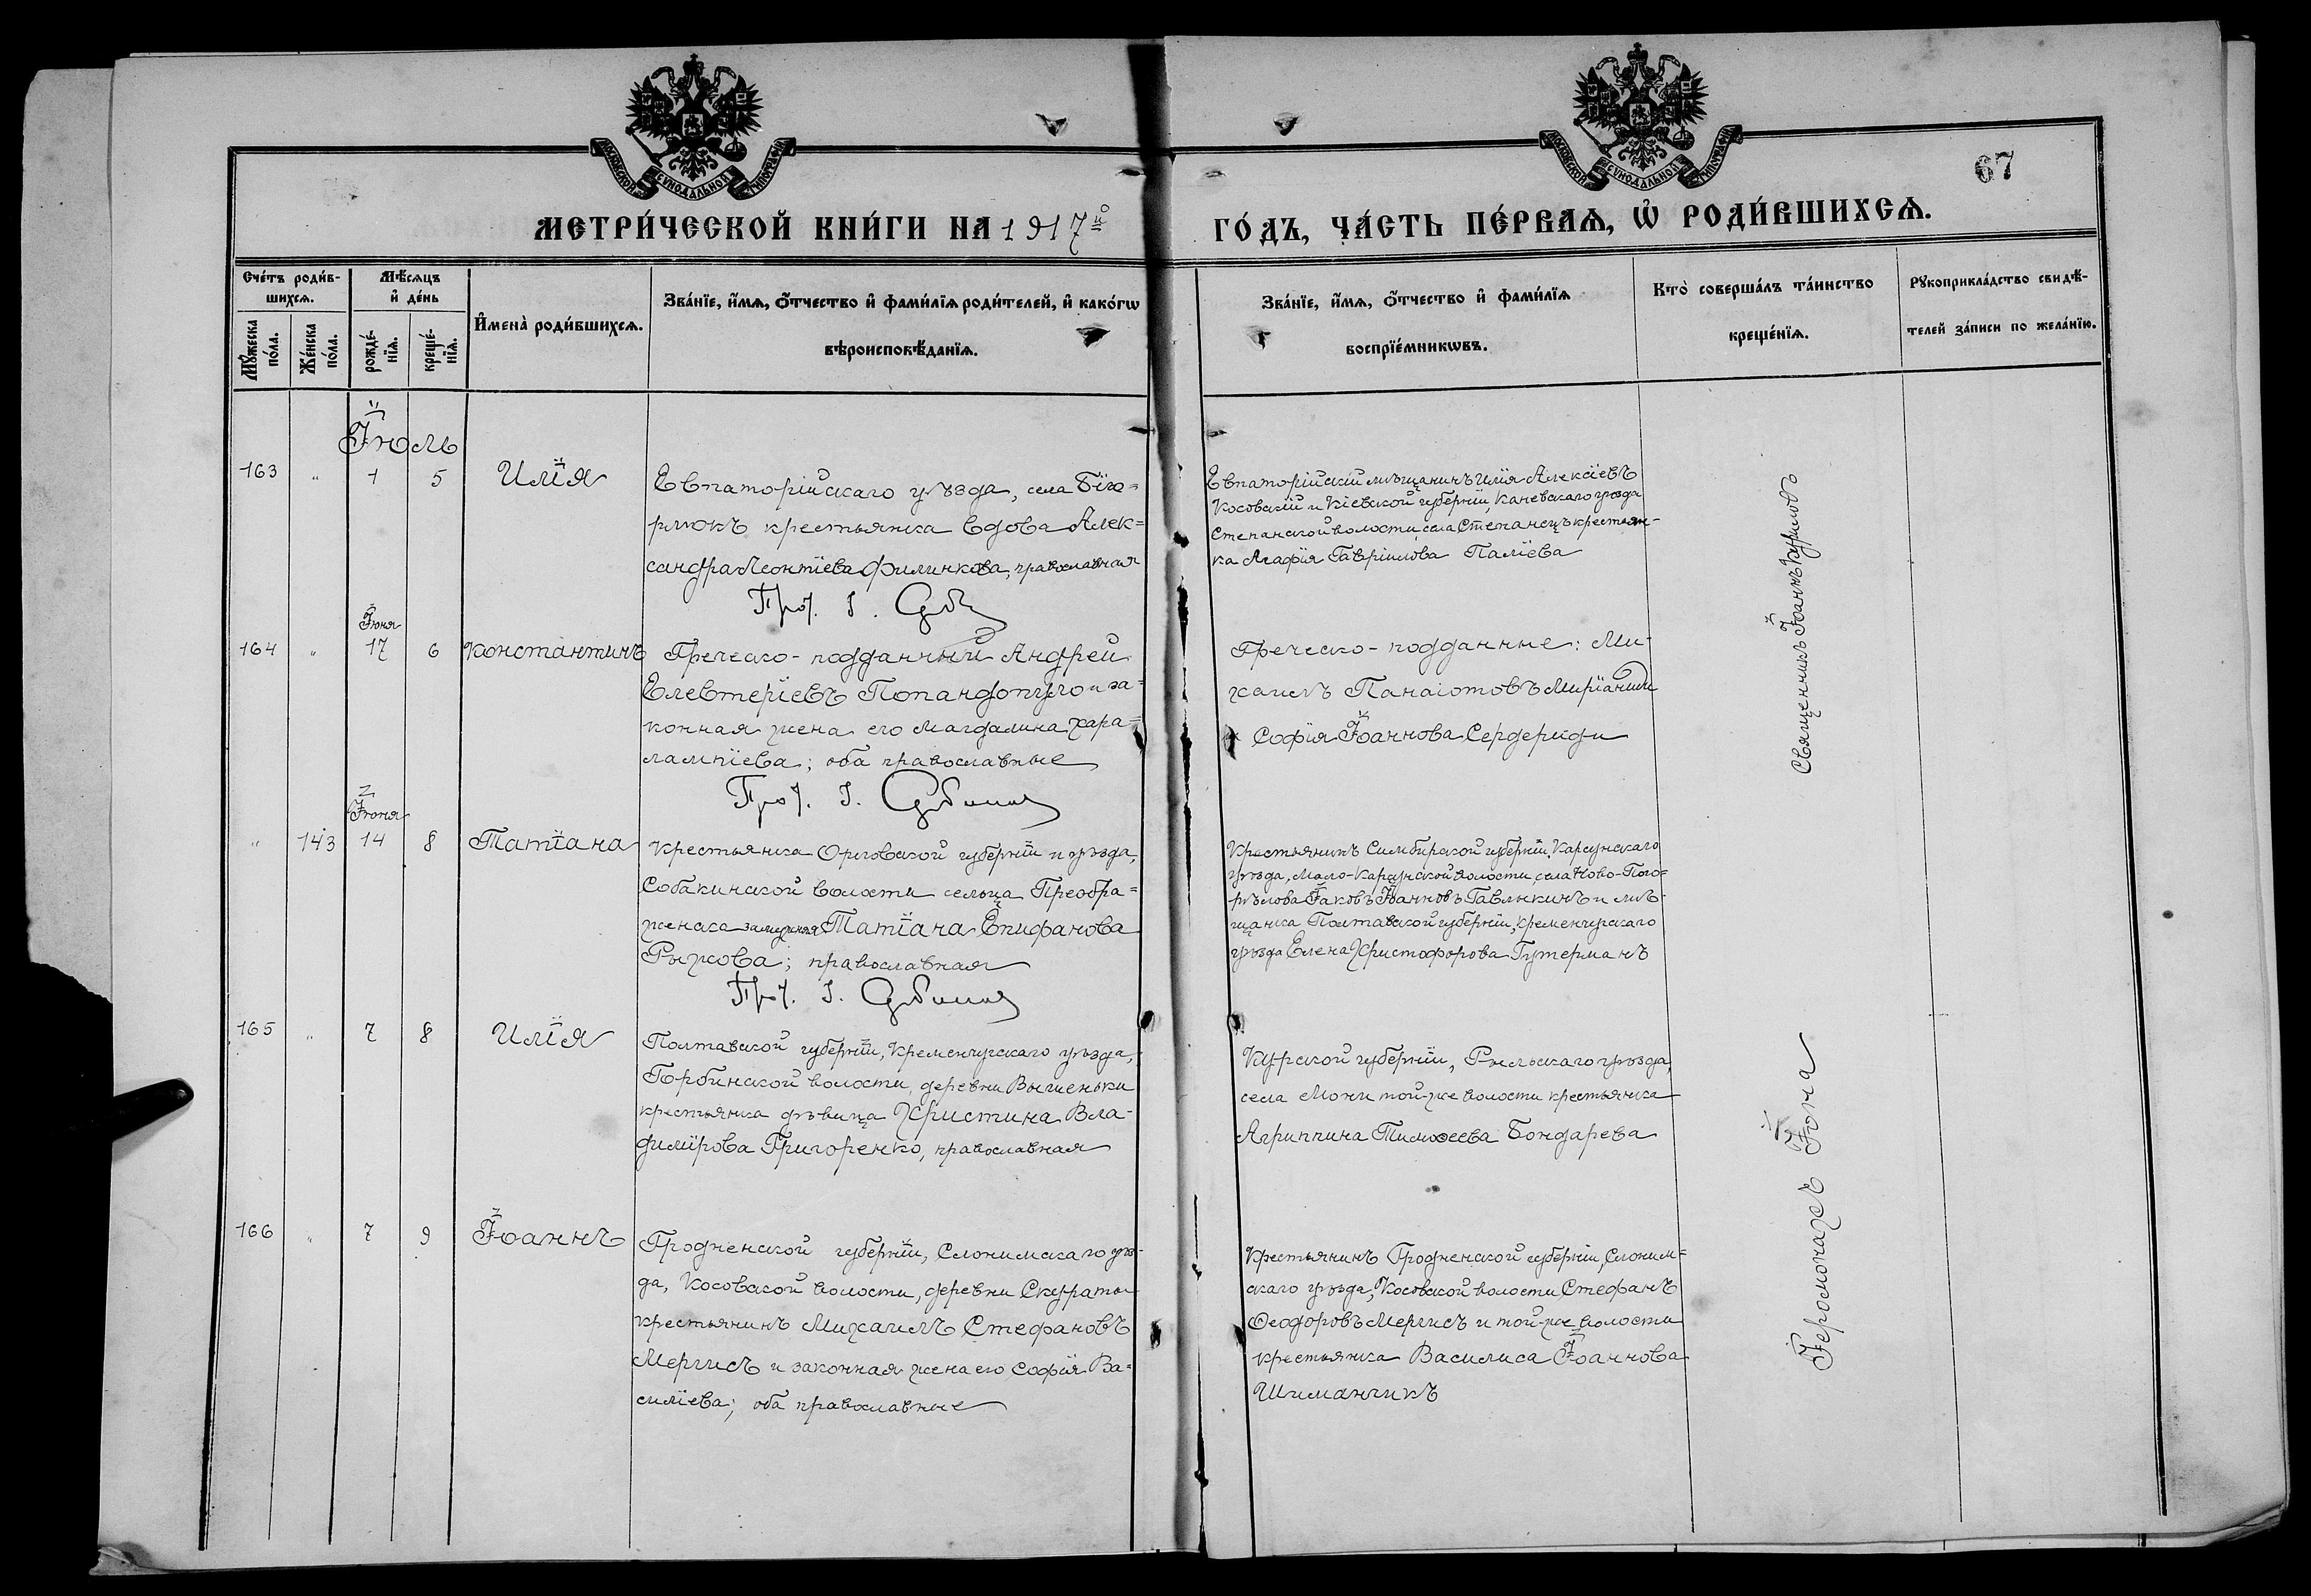 МОСКОВСКОЙ СѴНОДАЛЬНОЙ ТИПОГРАФІИ
МОСКОВСКОЙ СѴНОДАЛЬНОЙ ТИПОГРАФІИ
67
МЕТРИ́ЧЕСКОЙ КНИ́ГИ НА 1917й
ГО́ДЪ, ЧА́СТЬ ПЕ́РВАѦ, Ѡ҆ РОДИ́ВШИХСѦ.
Сче́тъ роди́в-
шихсѧ.
Мꙋ́жеска
по́ла.
Же́нска
по́ла.
Мѣ́сѧцъ
и҆ де́нь
рожде́-
нїѧ.
креще́-
нїѧ.
И҆мена̀ роди́вшихсѧ.
Зва́нїе, и҆́мѧ, ѻ҆́тчество и҆ фами́лїѧ роди́телей, и҆ како́гѡ
вѣроисповѣ́данїѧ.
Зва́нїе, и҆́мѧ, ѻ҆́тчество и҆ фами́лїѧ
воспрїе́мникѡвъ.
Кто̀ соверша́лъ та́инство
креще́нїѧ.
Рꙋкоприкла́дство свидѣ́-
телей за́писи по жела́нїю.
Іюль
163 " 1 5 Илія
Евпаторійскаго уѣзда, села Біюк-
крестьянка вдова Алек=
сандра Леонтіева Филинкова, православная
Прот. І. Сербинов
Евпаторійскій мѣщанинъ Илія Алексіевъ
Косовскій и Кіевской губерніи, Каневскаго уѣзда
Степанской волости, села Степанецъ крестьян-
ка Агафія Гавріилова Паліева
Священникъ Іоаннъ Куриловъ
Іюня
164 " 17 6 Константинъ
Греческо-подданный Андрей
Елевтеріевъ Попандопуло и за-
конная жена его Магдалина Хара=
лампіева; оба православные
Прот. І. Сербинов
Греческо-подданные: Ми-
хаилъ Панаіотовъ Миріаниди
и Софія Іоаннова Сердериди
Іюня
" 143 14 8 Татіана
Крестьянка Орловской губерніи и уѣзда,
Собакинской волости сельца Преобра=
женска замужняя Татіана Епифанова
Рыжова; православная
Прот. І. Сербинов
Крестьянинъ Симбирской губерніи, Карсунскаго
уѣзда, Мало-Карсунской волости, села Ново-Пого=
рѣлова Іаковъ Іоанновъ Гавлюкинъ и мѣ-
щанка Полтавской губерніи, Кременчугскаго
уѣзда Елена Христофорова Гутерманъ
165 " 7 8 Илія
Полтавской губерніи, Кременчугскаго уѣзда,
Горбинской волости, деревни Вышеньки
крестьянка дѣвица Христина Вла-
димірова Григоренко, православная
Курской губерніи, Рыльскаго уѣзда,
села Моки той-же волости крестьянка
Агриппина Тимоѳеева Бондарева
Іеромонахъ Іона
166 " 7 9 Іоаннъ
Гродненской губерніи, Слонимскаго уѣз-
да, Косовской волости, деревни Скураты
крестьянинъ Михаилъ Стефановъ
Мергисъ и законная жена его Софія Ва=
силіева; оба православные
Крестьянинъ Гродненской губерніи, Слоним=
скаго уѣзда, Косовской волости Стефанъ
Ѳеодоровъ Мергисъ и той-же волости
крестьянка Василиса Іоаннова
Шиманчикъ